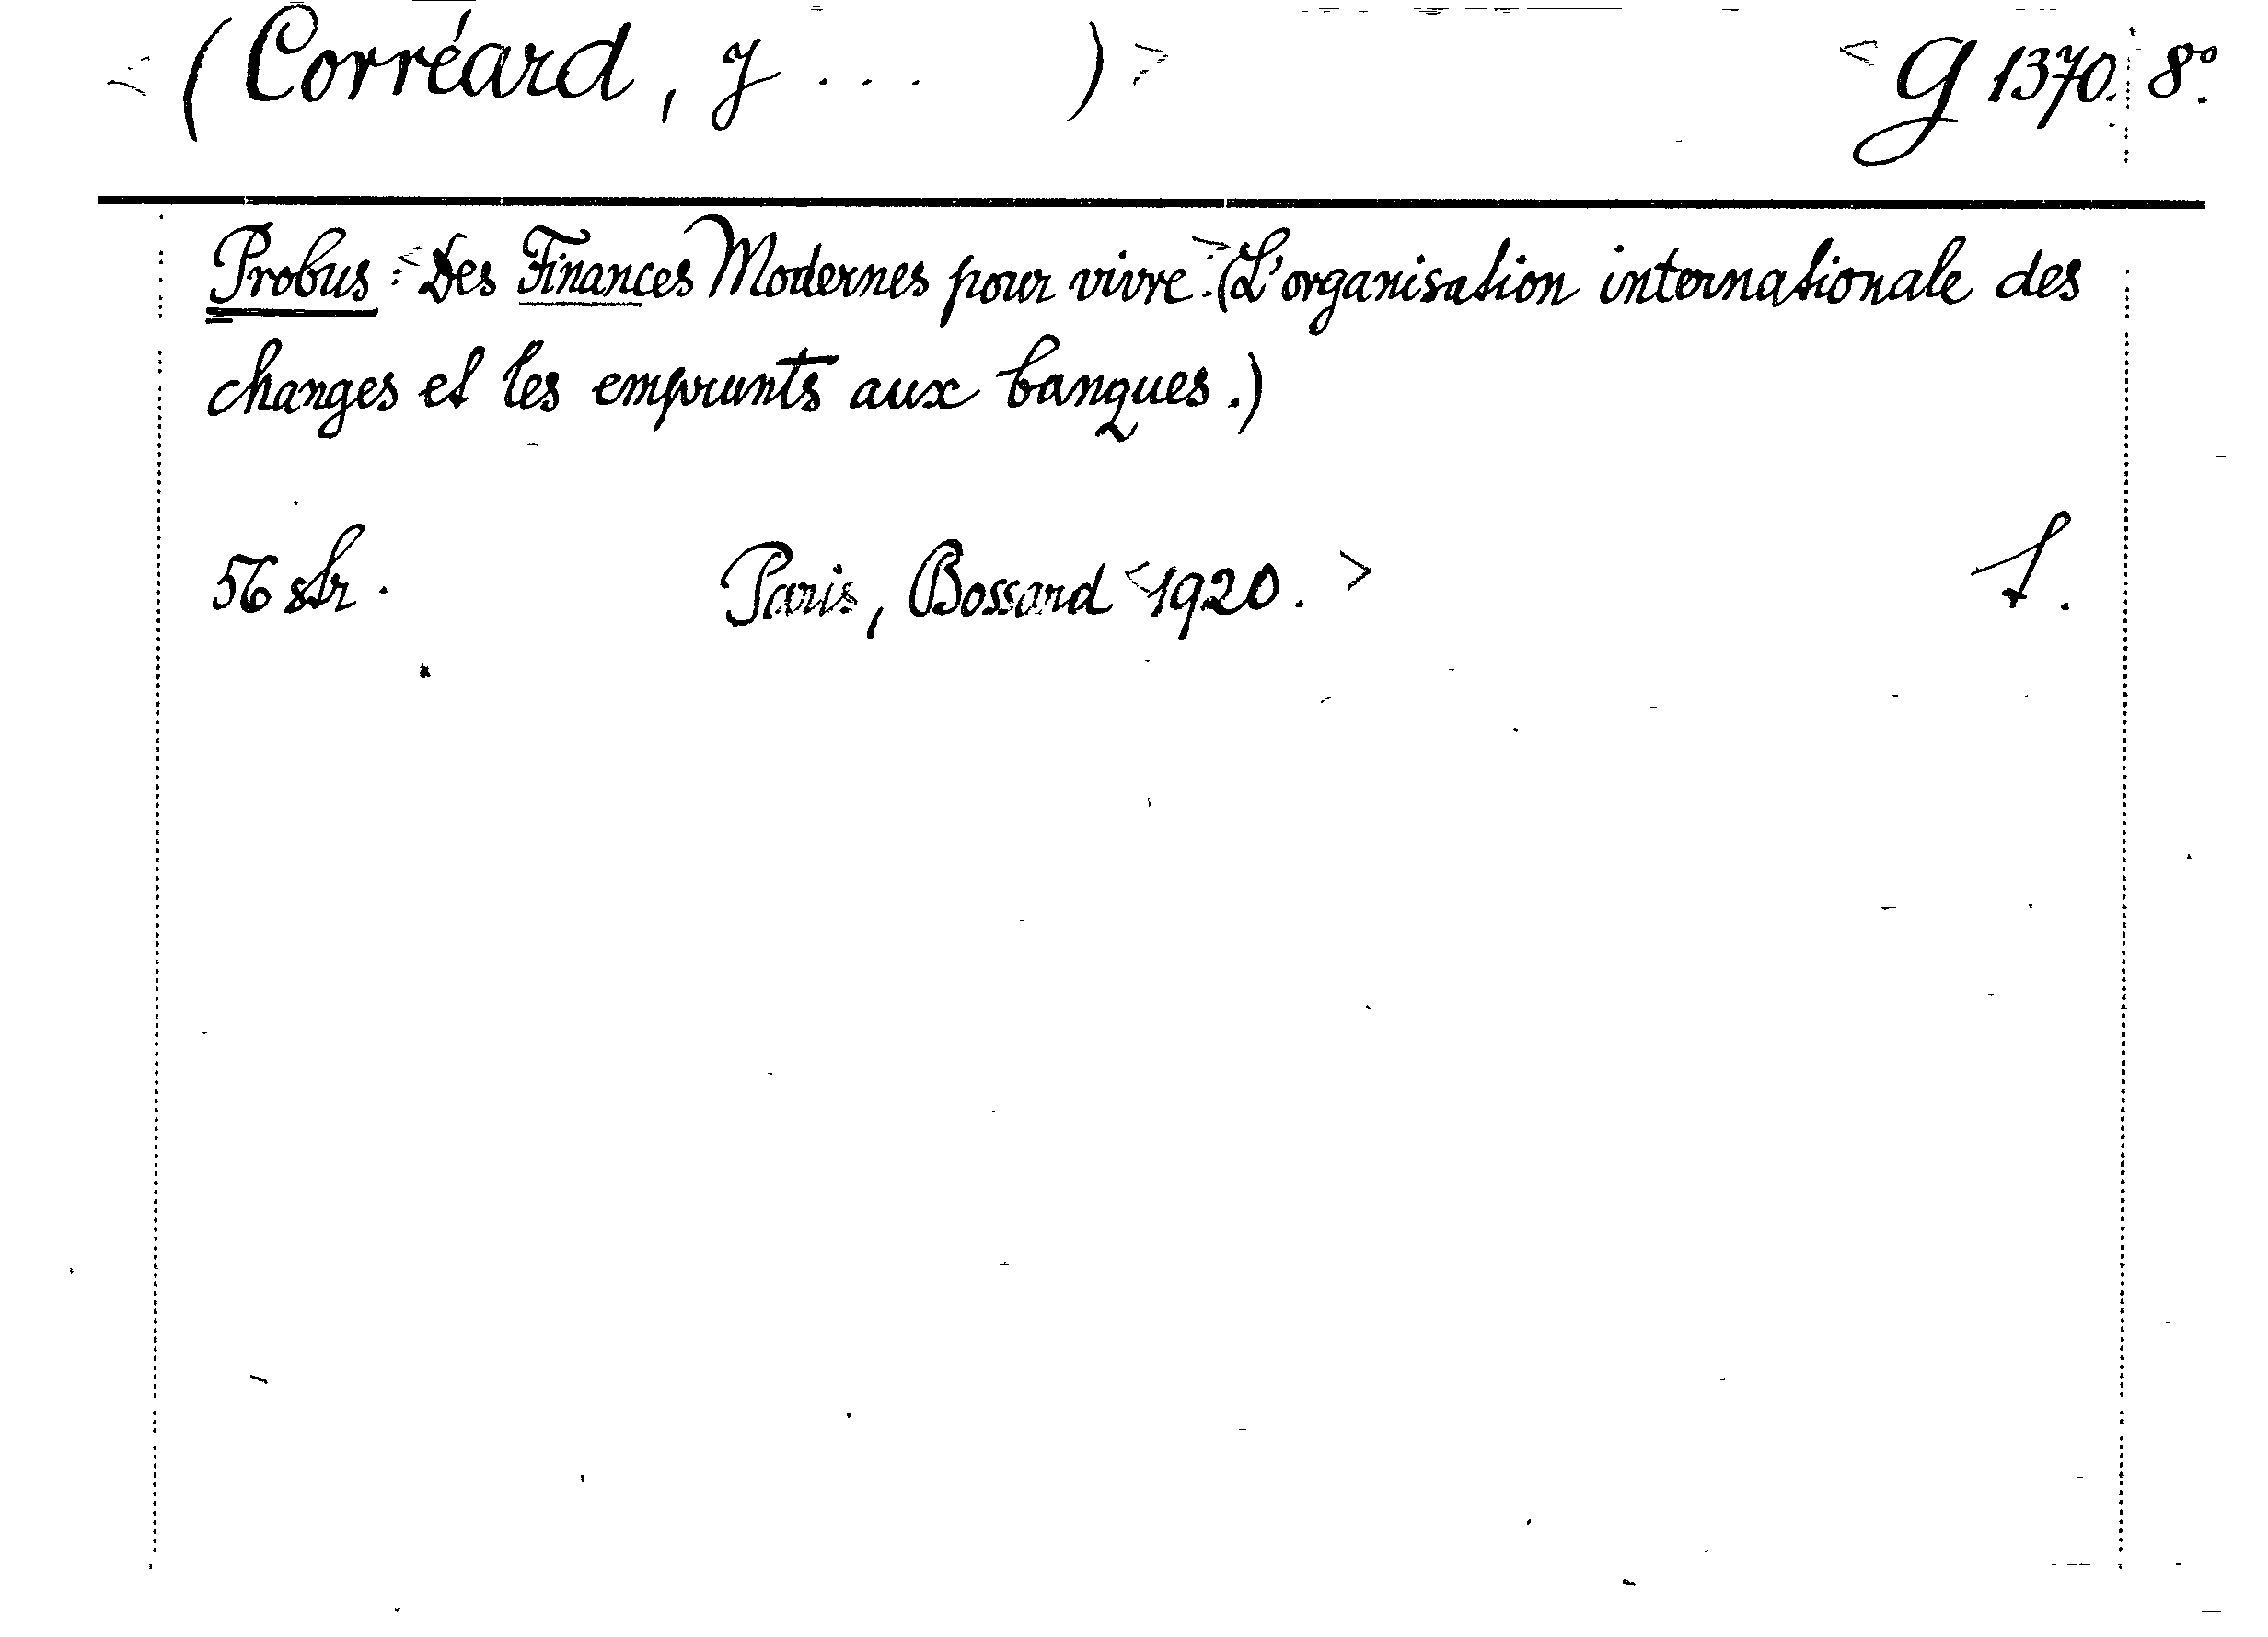 <(Corréard, J . . . )> <G 1370. 8°.
Probus: <Des Finances Modernes pour vivre.> (L'organisation internationale des
changes et les emprunts aux banques.)
56 str. Paris, Bossard <1920. > f.